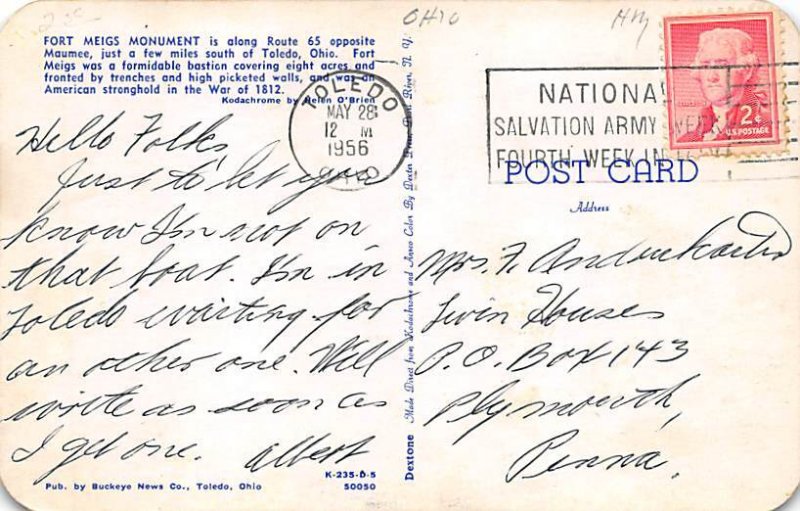 OHIO
FORT MEIGS MONUMENT is along Route 65 opposite
Maumee, just a few miles south of Toledo, Ohio. Fort
Meigs was a formidable bastion covering eight acres and
fronted by trenches and high picketed walls, and was an
American stronghold in the War of 1812.
Kodachrome by Helen O'Brien
TOLEDO
MAY 28
12 M
1956
Hello Folks,
Just to let you
know I'm not on
that boat. I'm in
Toledo waiting for
an other one. Will
write as soon as
I get one. Albert
K-235-D-5
Pub. by Buckeye News Co., Toledo, Ohio 50050
Dextone Made Direct from Kodachrome and Ansco Color By Dexter Press, Pearl River, N. Y.
NATIONA
SALVATION ARMY WEEK
FOURTH WEEK IN
2¢
U.S. POSTAGE
POST CARD
Address
Mrs. F.
Twin Houses
P.O. Box 143
Plymouth,
Penna.